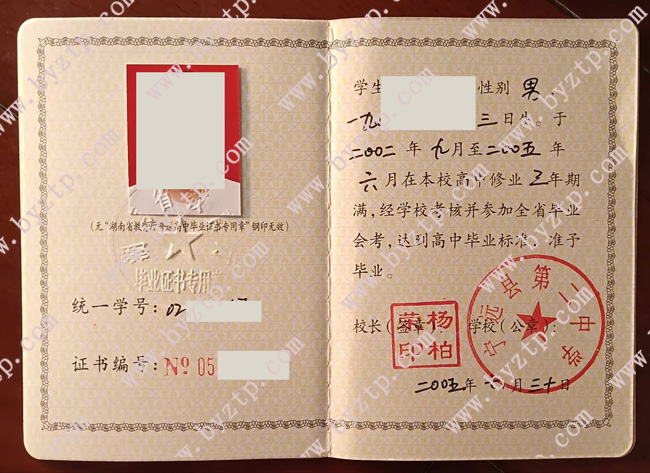 (无"湖南省教育厅普通高中毕业证书专用章"钢印无效)
毕业证书专用
统一学号: 02
证书编号: № 05
学生 性别 男 .
一九 三日生。于
二00二 年 九月至二00五 年
六 月在本校高中修业 三 年期
满,经学校考核并参加全省毕业
会考,达到高中毕业标准,准予
毕业。
校长(签章): 学校(公章):
杨柏
印
宁远县第一中学
二00五年 六 月 三十日
www.byztp.com